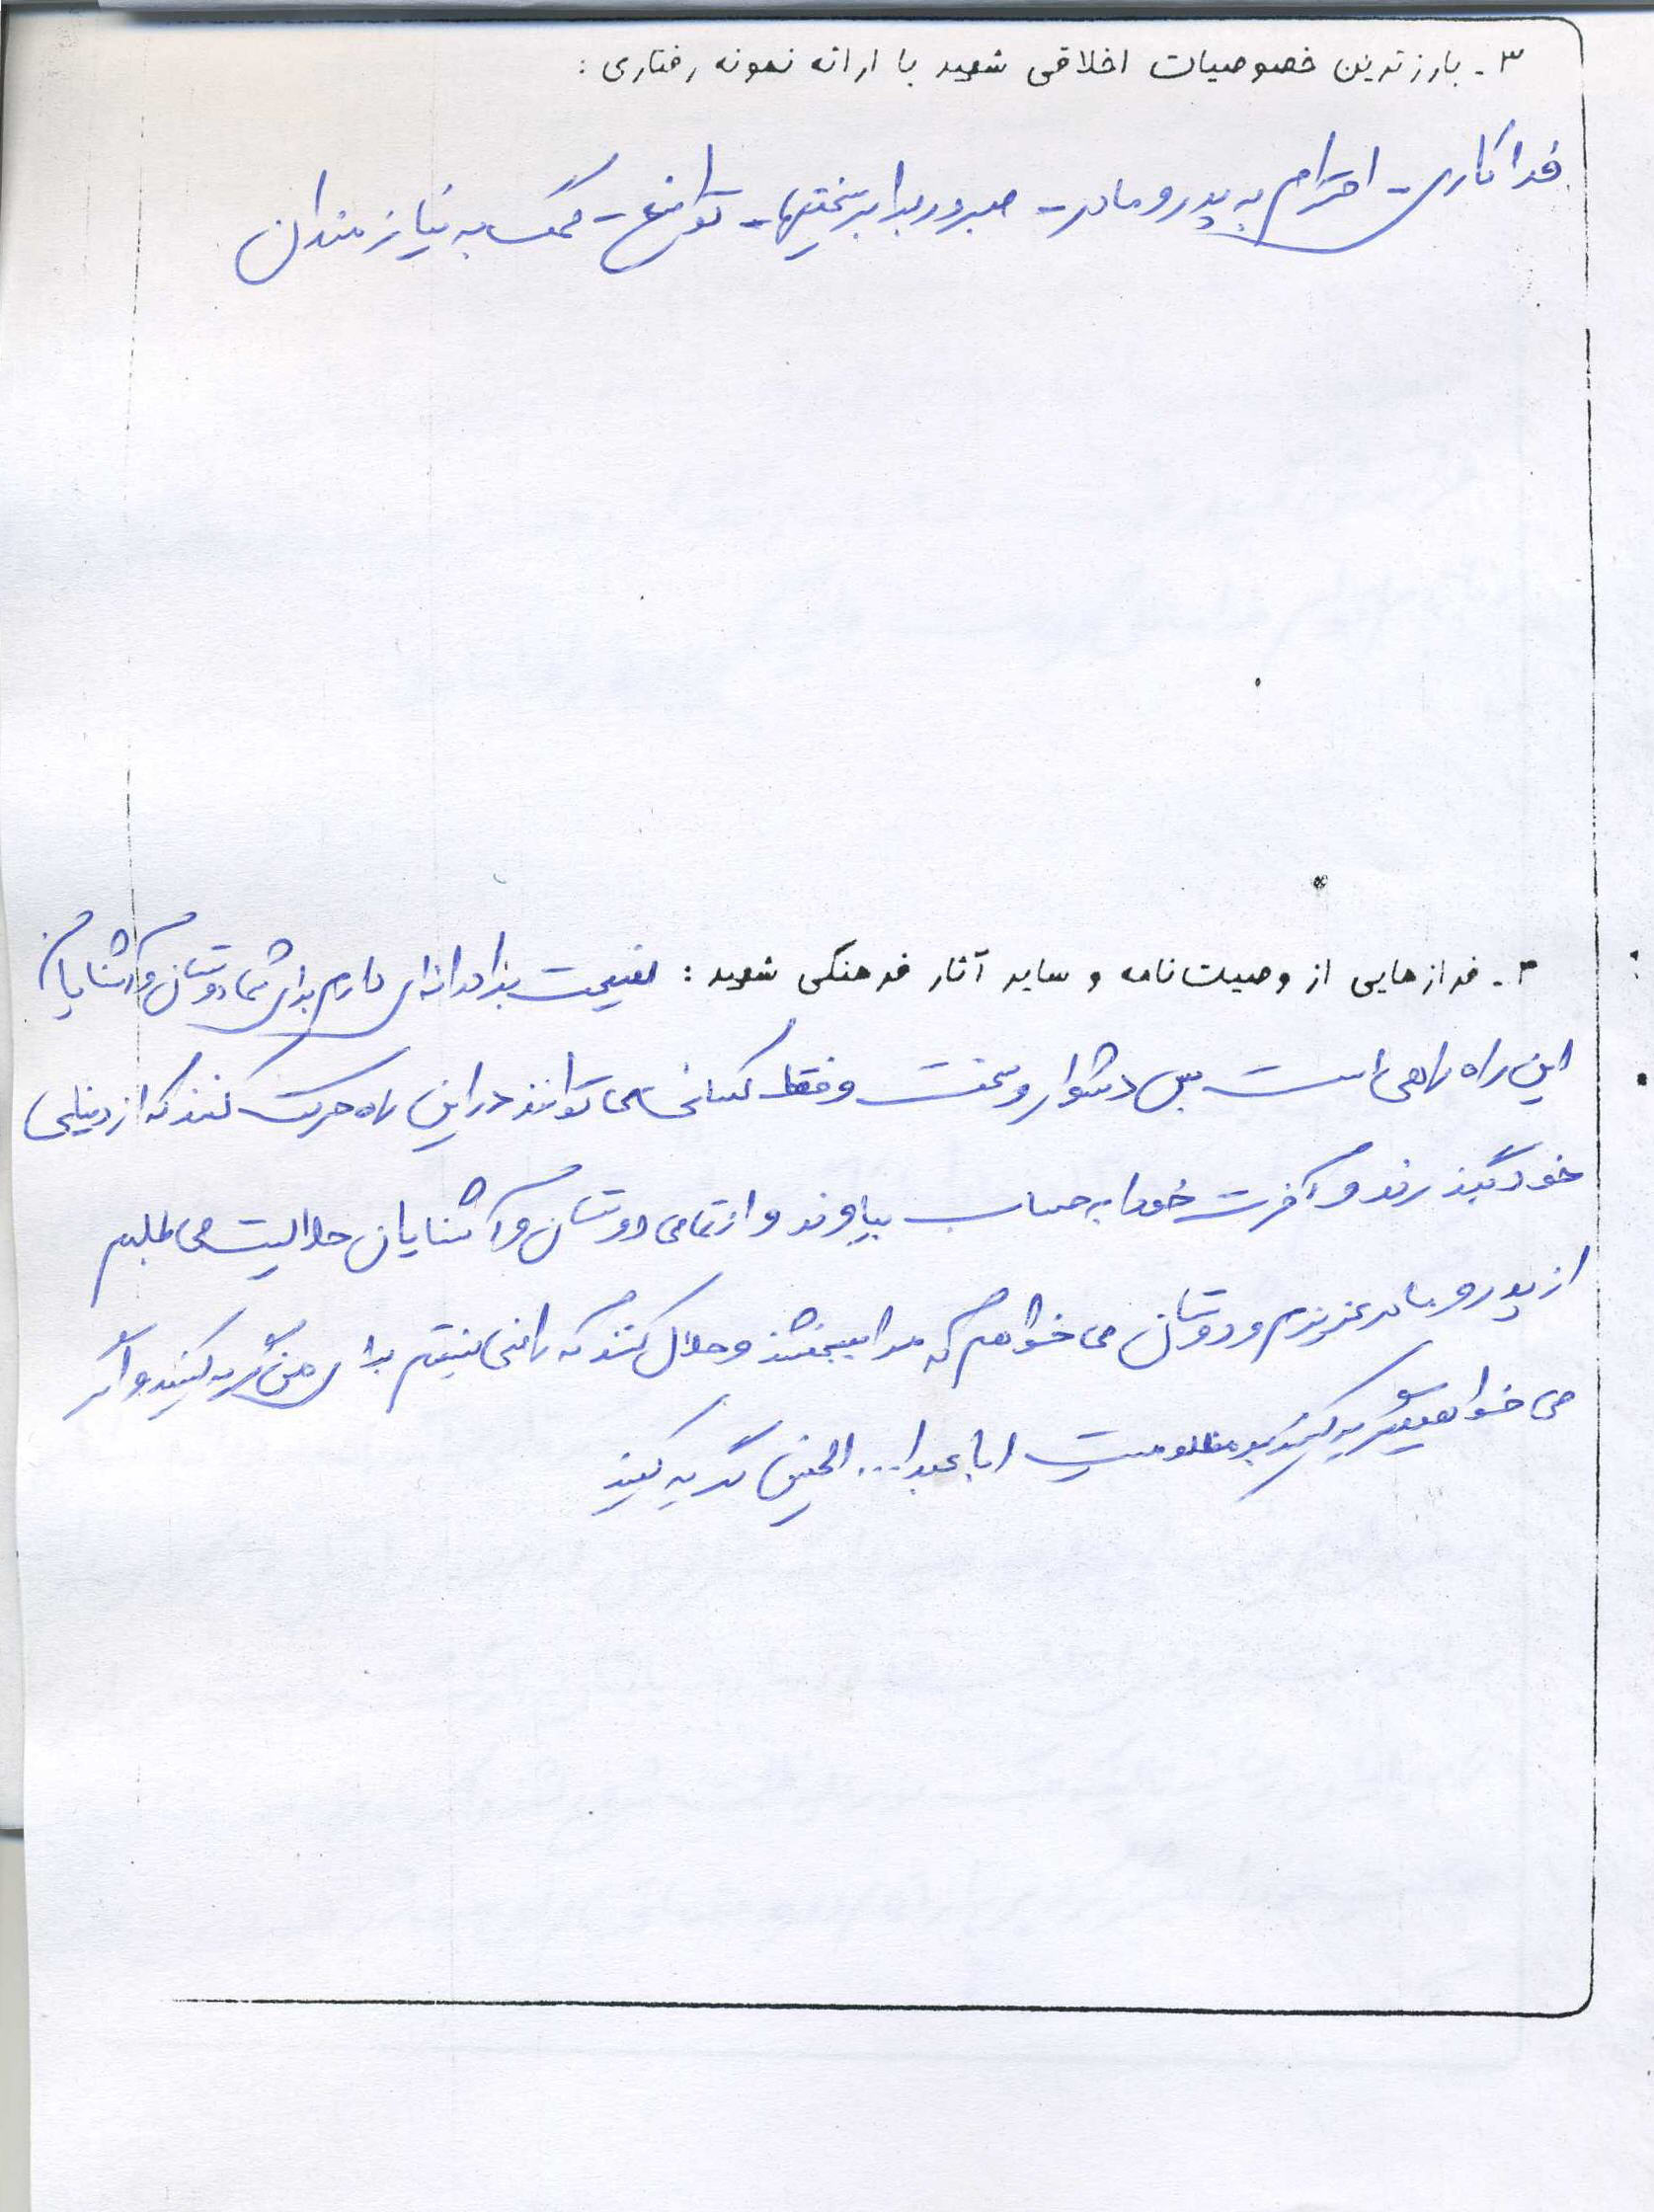 ۳- بارزترین خصوصیات اخلاقی شهید با ارائه نمونه رفتاری :
فداکاری - احترام به پدر و مادر - صبر در برابر سختیها - تواضع - کمک به نیازمندان
۴- فرازهایی از وصیت‌نامه و سایر آثار فرهنگی شهید : نصیحت برادرانه‌ای دارم برای شما دوستان و آشنایان
این راه راهی است بس دشوار و سخت و فقط کسانی می توانند در این راه حرکت کنند که از دنیای
خود بگذرند و آخرت خود را به حساب بیاورند و از تمامی دوستان و آشنایان حلالیت می طلبم
از پدر و مادر عزیزم و دوستان می خواهم که مرا ببخشند و حلال کنند که راضی نیستم برای من گریه کنید و اگر
می خواهید گریه کنید بر مظلومیت ابا عبدا... الحسین گریه کنید